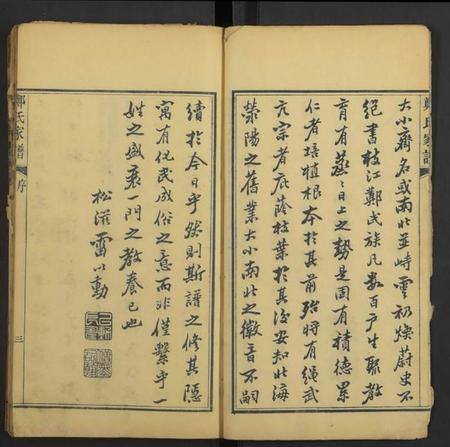 大小齊名或南北並峙雲初煥蔚史不
絕書枝江鄭氏族凡數百戶生聚教
育有蒸〻日上之勢是固有積德累
仁者培植根本於其前殆將有繩武
亢宗者庇蔭枝葉於其後安知北海
滎陽之舊業大小南北之徽音不嗣
續於今日乎然則斯譜之修其隱
寓有化民成俗之意而非僅繫乎一
姓之盛衰一門之教養已也
松滋雷以動
鄭氏家譜
序
三
鄭氏家譜